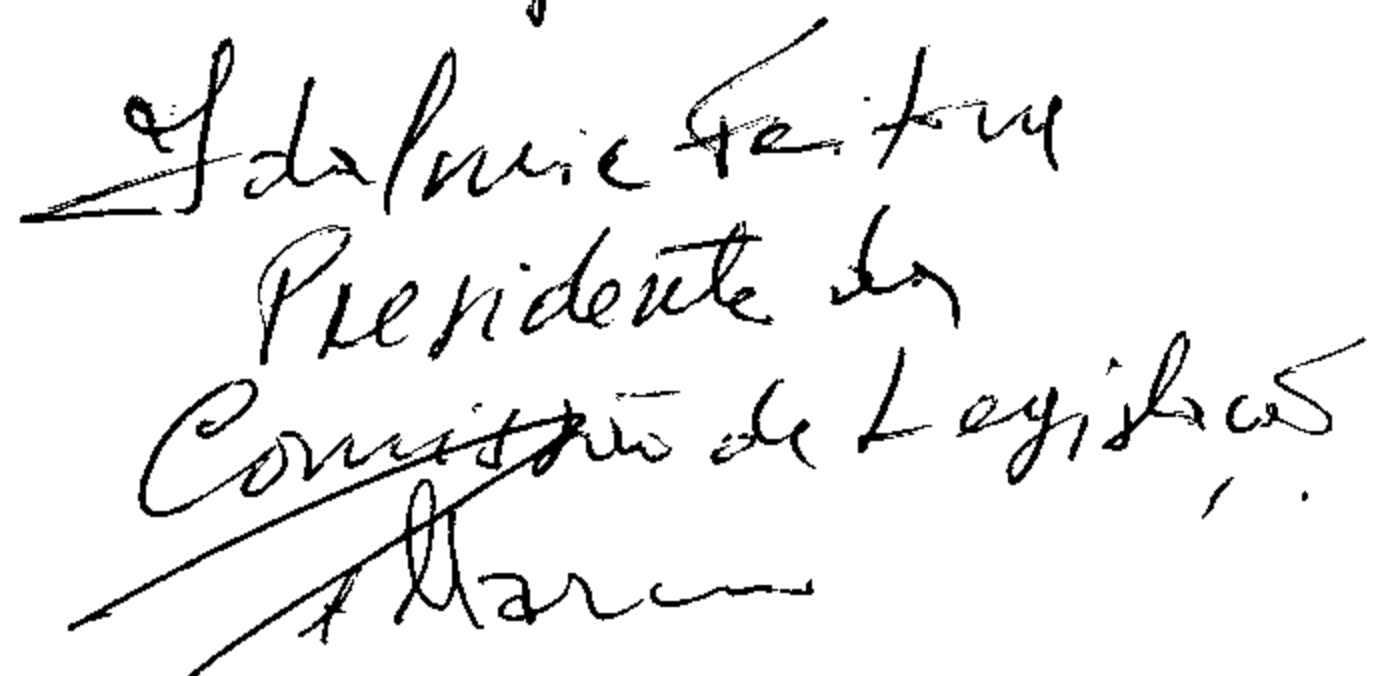 Idalmir Feitosa
Presidente da
Comissão de Legislação.